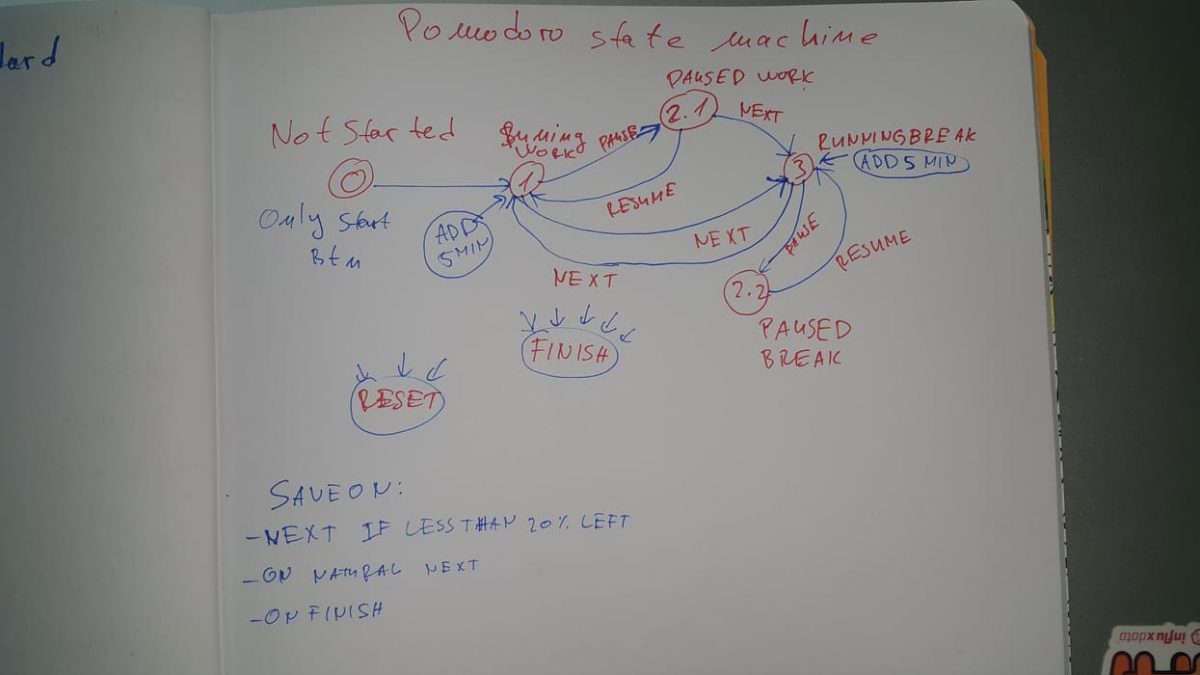 dard
Pomodoro state machine
PAUSED WORK
2.1
NEXT
Not Started
Running
WORK
PAUSE
RUNNINGBREAK
ADD 5 MIN
1
3
RESUME
Only Start
Btn
ADD
5 MIN
NEXT
PAUSE
RESUME
NEXT
2.2
PAUSED
BREAK
FINISH
RESET
SAVE ON:
- NEXT IF LESS THAN 20% LEFT
- ON NATURAL NEXT
- ON FINISH
influxdata